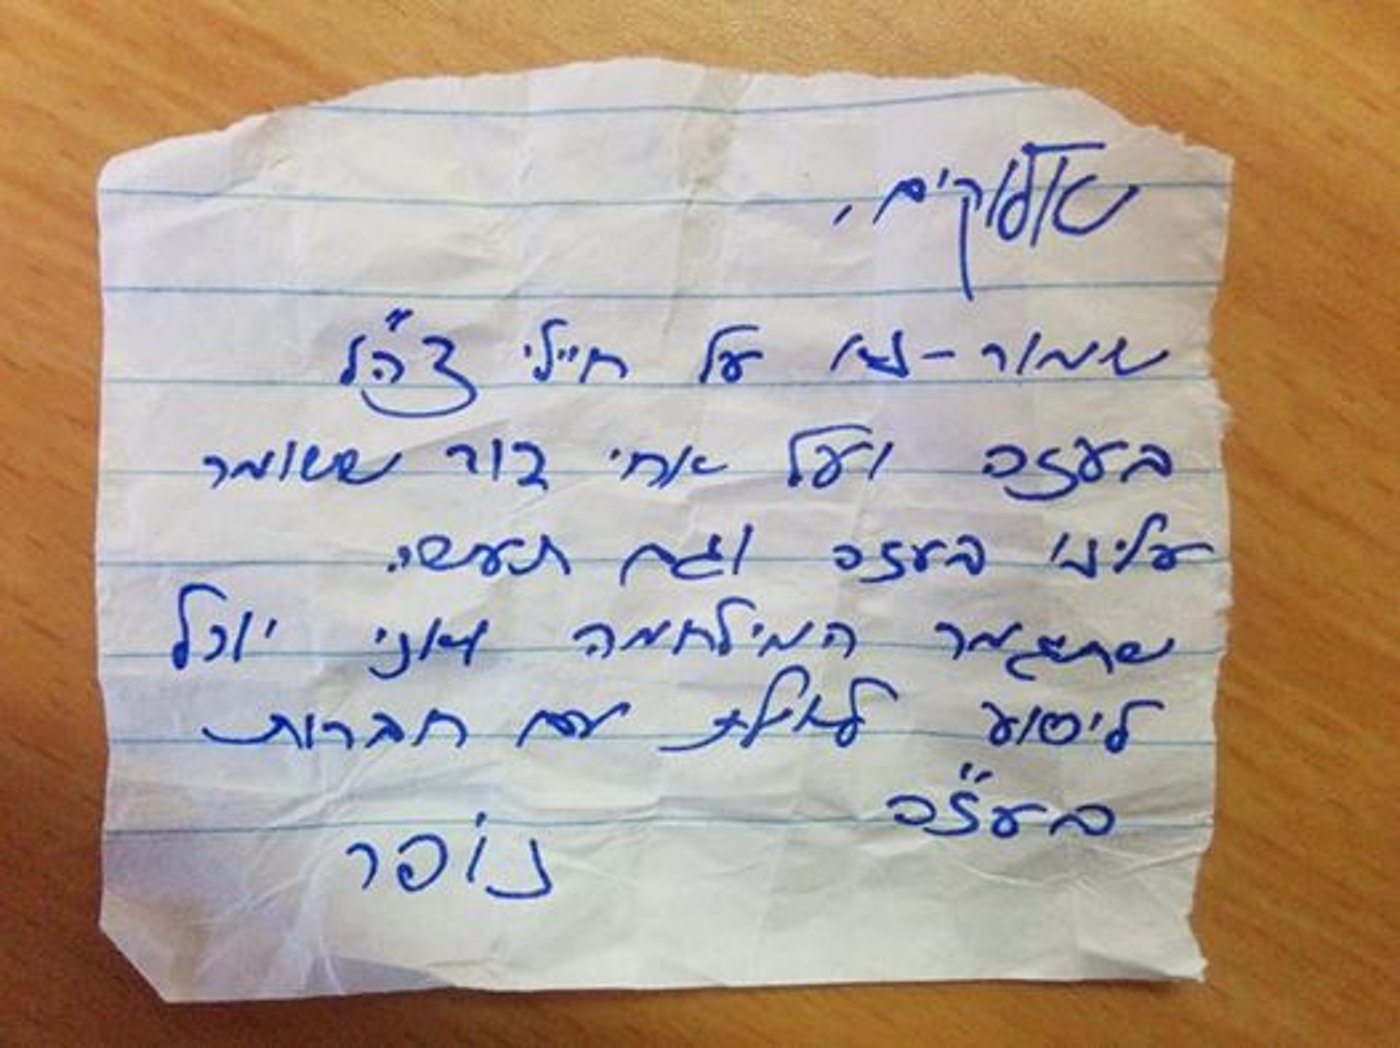 אלוקים,
שמור-נא על חיילי צה"ל
בעזה ועל אחי דור ששומר
עלינו בעזה וגם תעשה
שתגמר המילחמה ואני יוכל
ליסוע לאילת עם חברות
בעז"ה
נופר